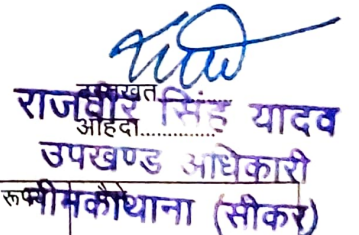 राजवीर सिंह यादव
ओहदा..............
उपखण्ड अधिकारी
नीमकाथाना (सीकर)